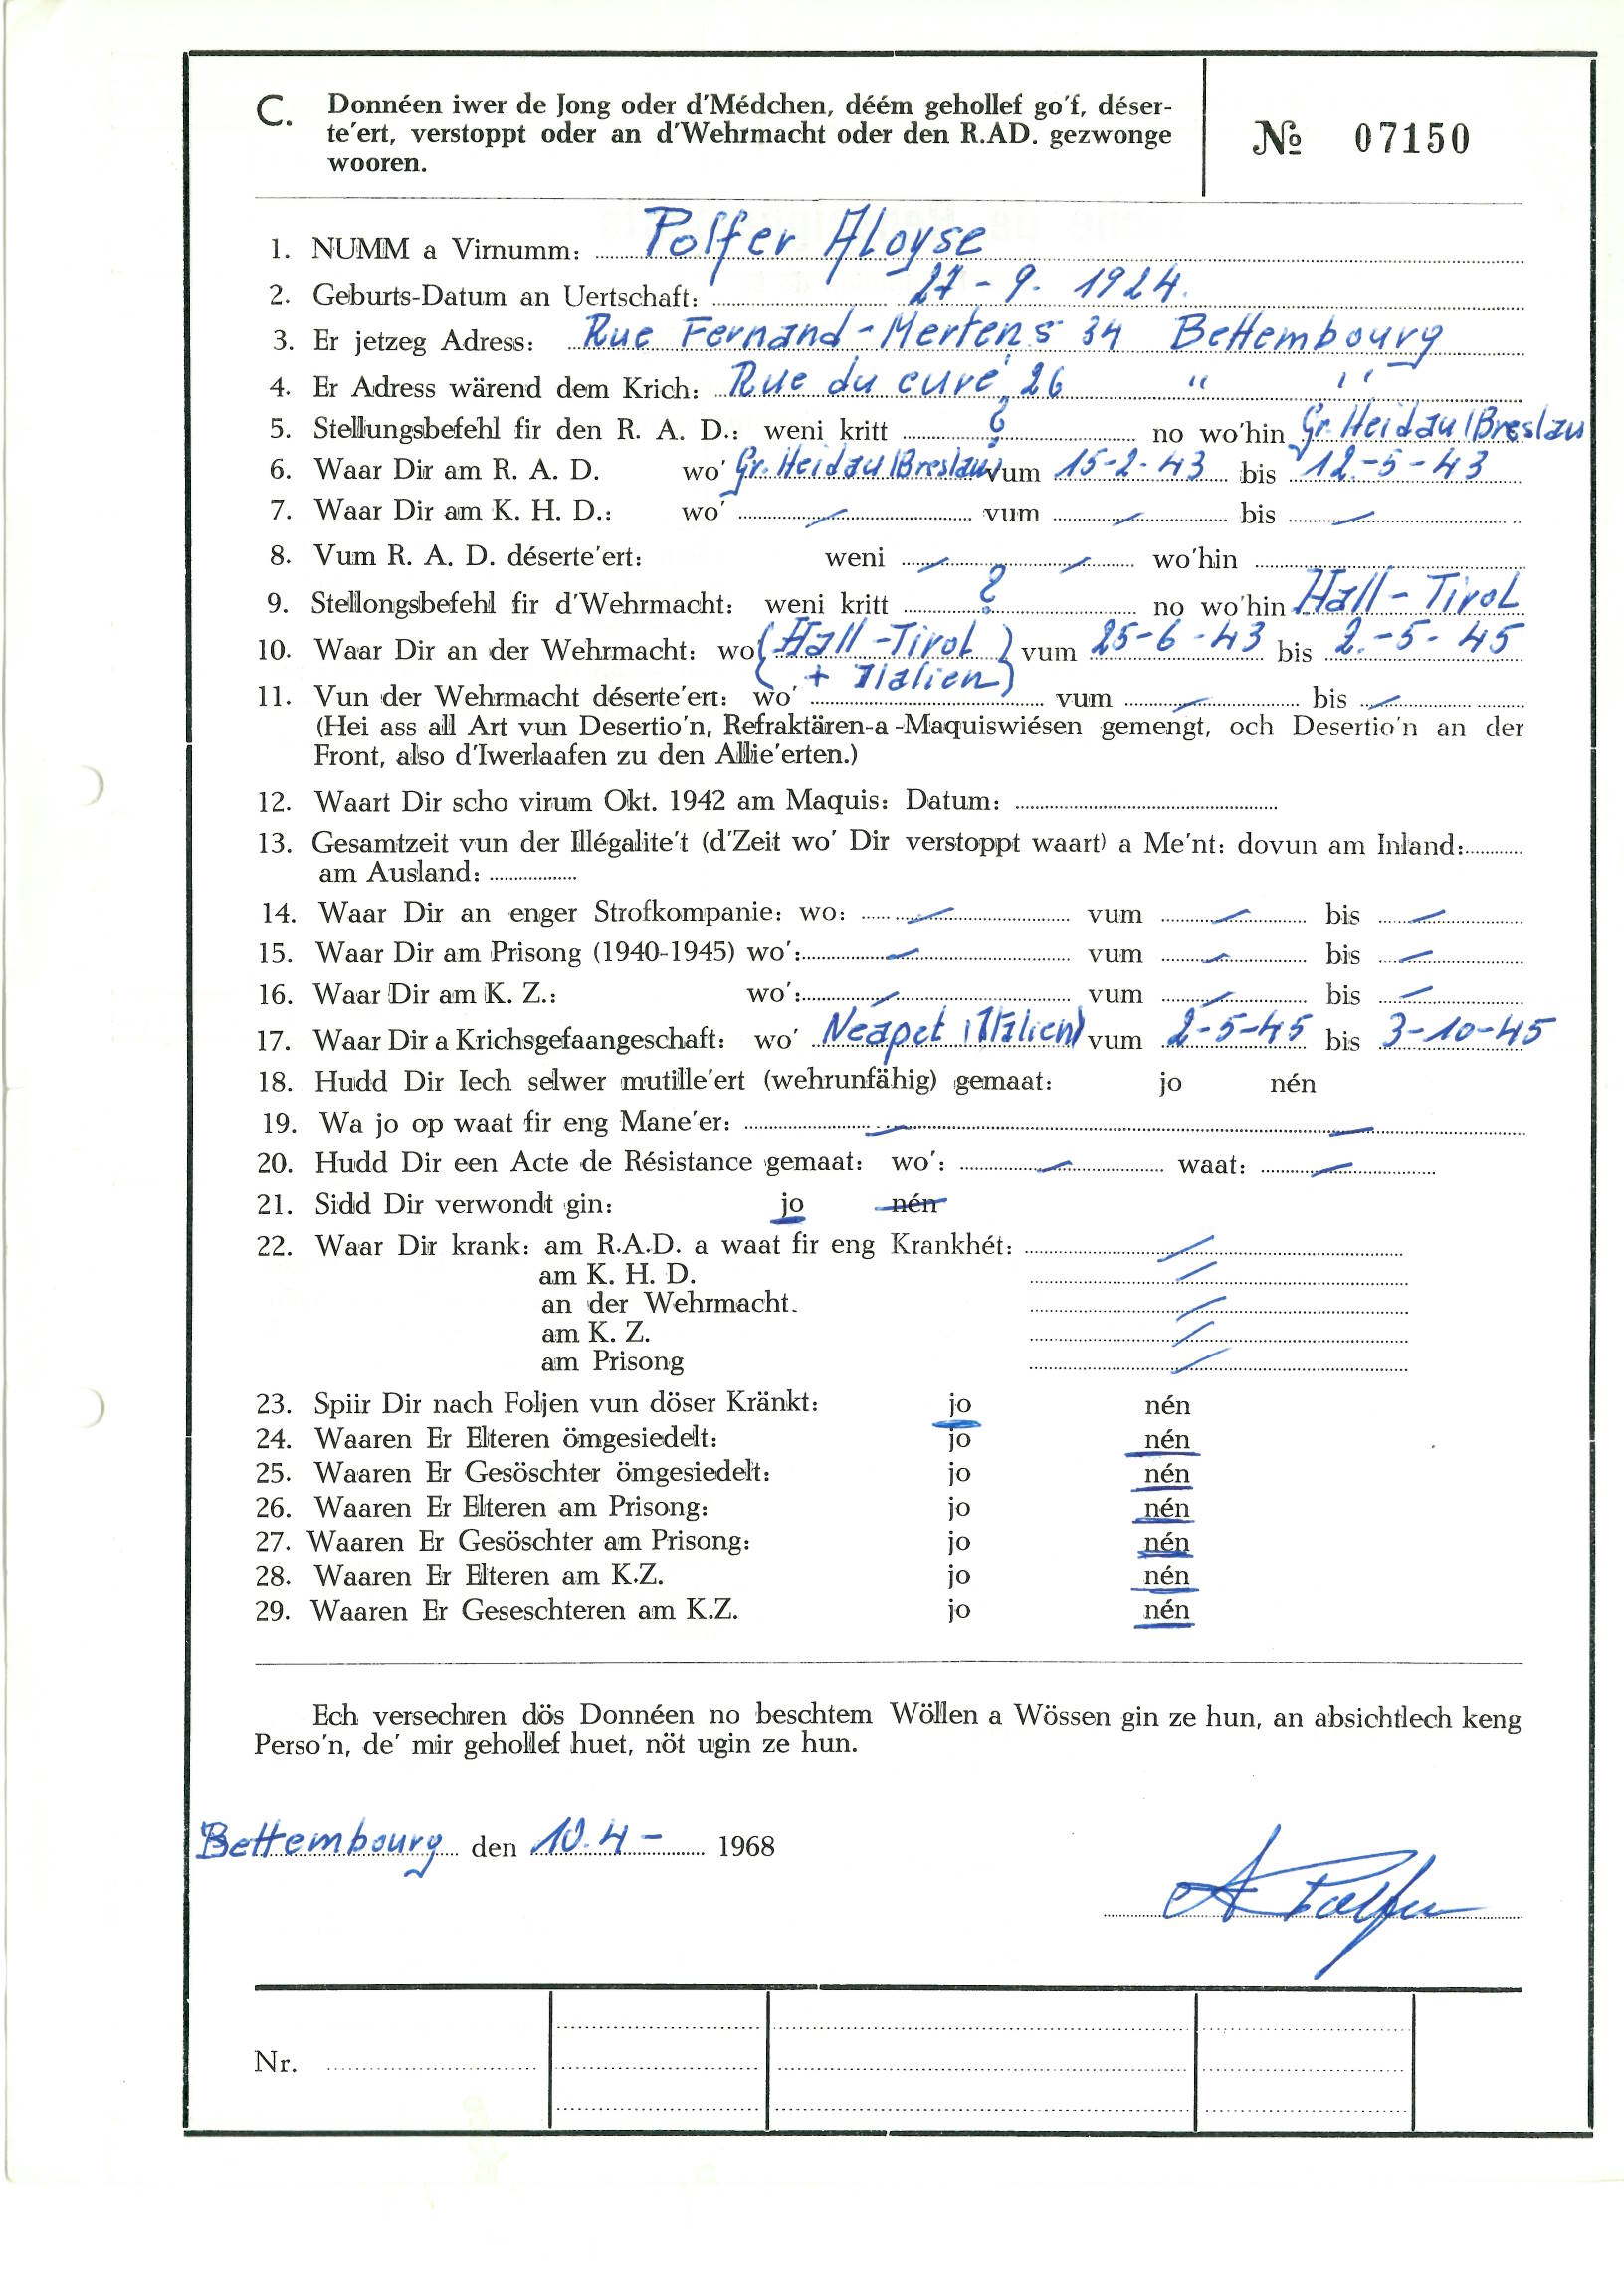 C. Donnéen iwer de Jong oder d'Médchen, déém gehollef go'f, déser-
te'ert, verstoppt oder an d'Wehrmacht oder den R.AD. gezwonge
wooren.
№ 07150
1. NUMM a Virnumm: Polfer Aloyse
2. Geburts-Datum an Uertschaft: 27-9-1924.
3. Er jetzeg Adress: Rue Fernand-Mertens 34 Bettembourg
4. Er Adress wärend dem Krich: Rue du curé 26 " "
5. Stellungsbefehl fir den R. A. D.: weni kritt ? no wo'hin Gr. Heidau/Breslau
6. Waar Dir am R. A. D. wo' Gr. Heidau/Breslau vum 15-2-43 bis 12-5-43
7. Waar Dir am K. H. D.: wo' — vum — bis —
8. Vum R. A. D. déserte'ert: weni — — wo'hin
9. Stellongsbefehl fir d'Wehrmacht: weni kritt ? no wo'hin Hall-Tirol
10. Waar Dir an der Wehrmacht: wo (Hall-Tirol) vum 25-6-43 bis 2.-5-45
(+ Italien)
11. Vun der Wehrmacht déserte'ert: wo' vum — bis —
(Hei ass all Art vun Desertio'n, Refraktären-a-Maquiswiésen gemengt, och Desertio'n an der
Front, also d'Iwerlaafen zu den Allie'erten.)
12. Waart Dir scho virum Okt. 1942 am Maquis: Datum:
13. Gesamtzeit vun der Illégalite't (d'Zeit wo' Dir verstoppt waart) a Me'nt: dovun am Inland:
am Ausland:
14. Waar Dir an enger Strofkompanie: wo: — vum — bis —
15. Waar Dir am Prisong (1940-1945) wo': — vum — bis —
16. Waar Dir am K. Z.: wo': — vum — bis —
17. Waar Dir a Krichsgefaangeschaft: wo' Neapel (Italien) vum 2-5-45 bis 3-10-45
18. Hudd Dir Iech selwer mutille'ert (wehrunfähig) gemaat: jo nén
19. Wa jo op waat fir eng Mane'er: — —
20. Hudd Dir een Acte de Résistance gemaat: wo': — waat: —
21. Sidd Dir verwondt gin: jo nén
22. Waar Dir krank: am R.A.D. a waat fir eng Krankhét: —
am K. H. D. —
an der Wehrmacht. —
am K. Z. —
am Prisong —
23. Spiir Dir nach Foljen vun döser Kränkt: jo nén
24. Waaren Er Elteren ömgesiedelt: jo nén
25. Waaren Er Gesöschter ömgesiedelt: jo nén
26. Waaren Er Elteren am Prisong: jo nén
27. Waaren Er Gesöschter am Prisong: jo nén
28. Waaren Er Elteren am K.Z. jo nén
29. Waaren Er Geseschteren am K.Z. jo nén
Ech versechren dös Donnéen no beschtem Wöllen a Wössen gin ze hun, an absichtlech keng
Perso'n, de' mir gehollef huet, nöt ugin ze hun.
Bettembourg den 10.4- 1968
A Polfer
Nr.